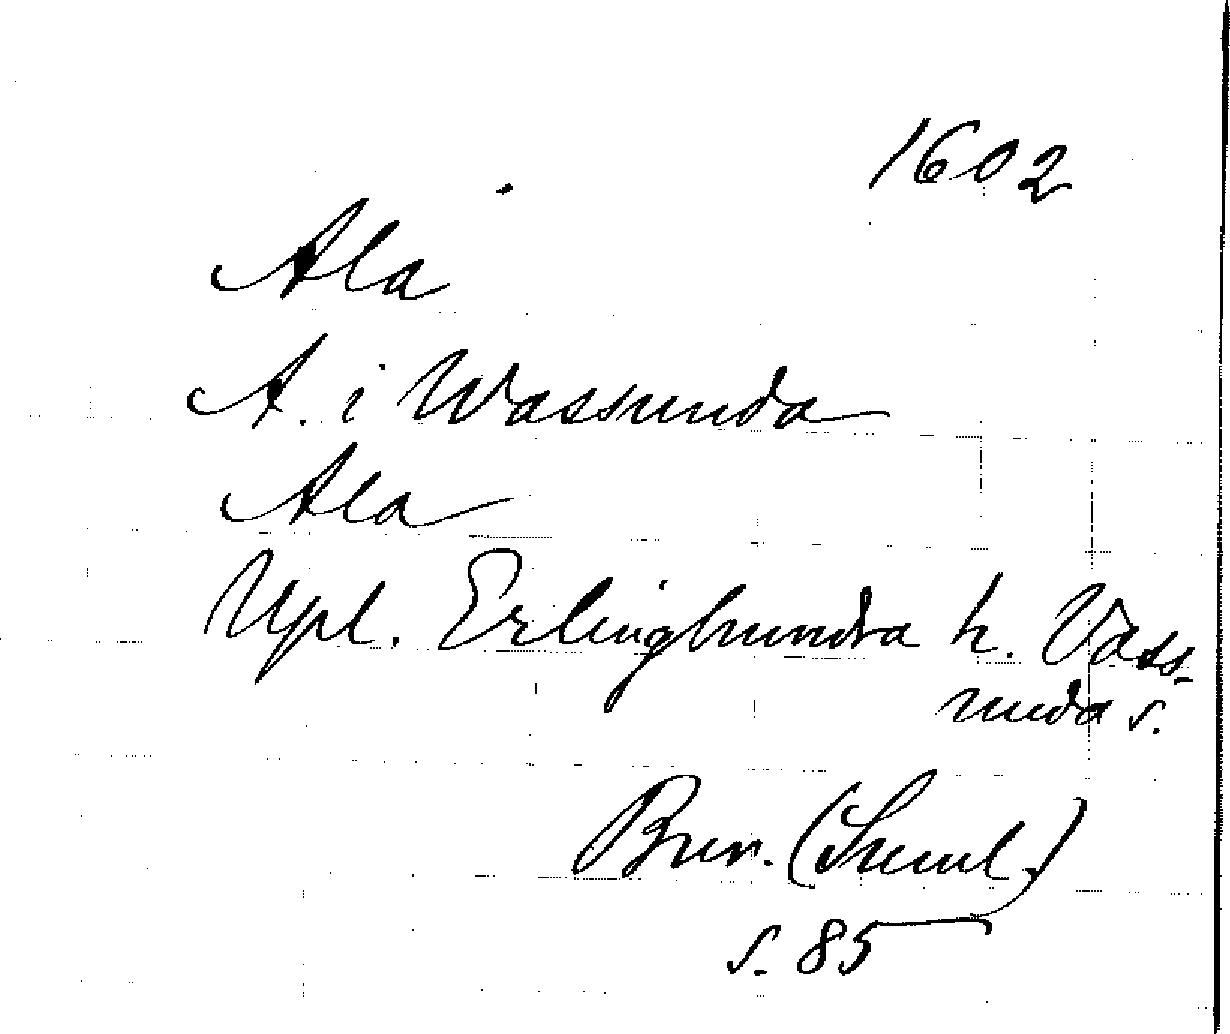 1602
Ala
A. i Wassunda
Ala
Upl. Erlinghundra h. Vass-
unda s.
Bur. (Suml.)
s. 85